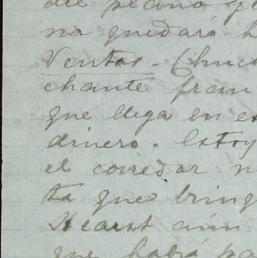 del plano q
na quedará h
Ventas. (huc
chante fran
que llega en es
dinero. Estoy
el corredor n
ta que bring
Hearst aún
que había pa